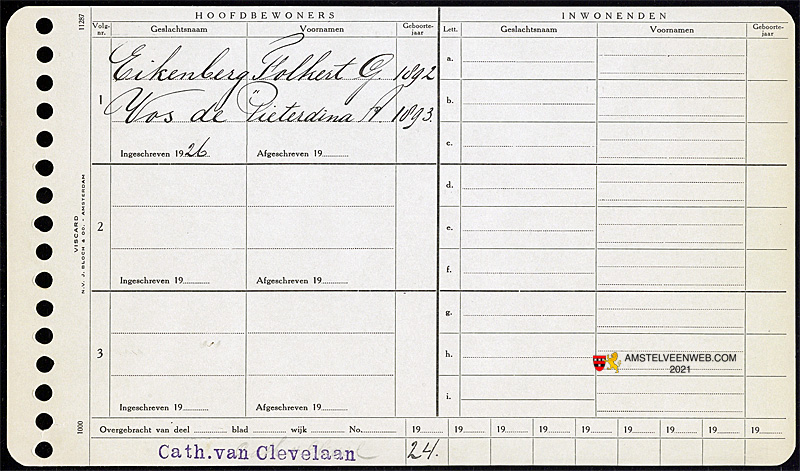 HOOFDBEWONERS
INWONENDEN
Volg-nr.
Geslachtsnaam
Voornamen
Geboorte-jaar
Lett.
Geslachtsnaam
Voornamen
Geboorte-jaar
11287
1
Eikenberg Folkert G. 1892
Vos de Pieterdina A. 1893.
Ingeschreven 1926 Afgeschreven 19
2
Ingeschreven 19 Afgeschreven 19
3
Ingeschreven 19 Afgeschreven 19
a.
b.
c.
d.
e.
f.
g.
h.
i.
VISCARD
N.V. J. BLOCH & CO. - AMSTERDAM
1000
AMSTELVEENWEB.COM
2021
Overgebracht van deel blad wijk No. 19 19 19 19 19 19 19 19 19
Cath.van Clevelaan 24.